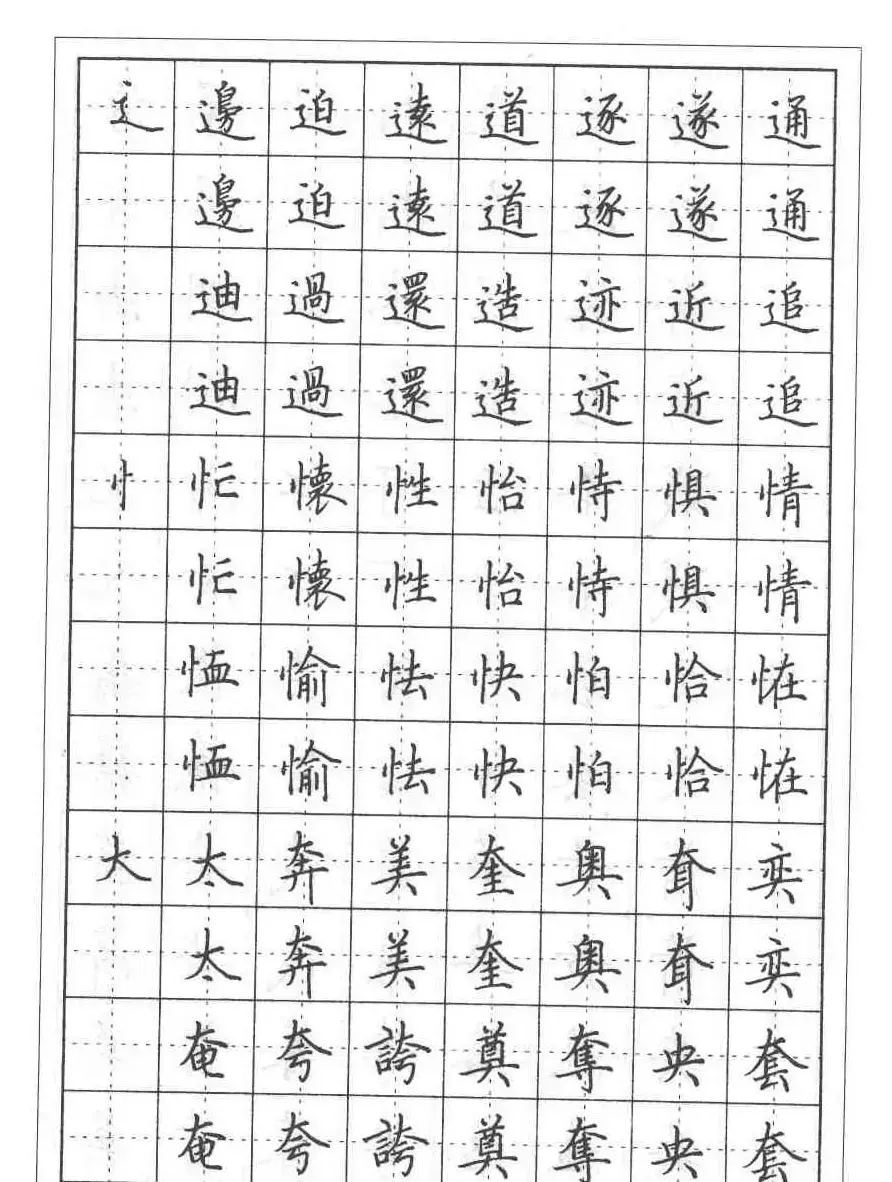 辶邊迫遠道逐遂通
邊迫遠道逐遂通
迪過還造迹近追
迪過還造迹近追
忄忙懷性怡恃惧情
忙懷性怡恃惧情
恤愉怯快怕恰恠
恤愉怯快怕恰恠
大太奔美奎奥耷奕
太奔美奎奥耷奕
奄夸誇奠奪央套
奄夸誇奠奪央套